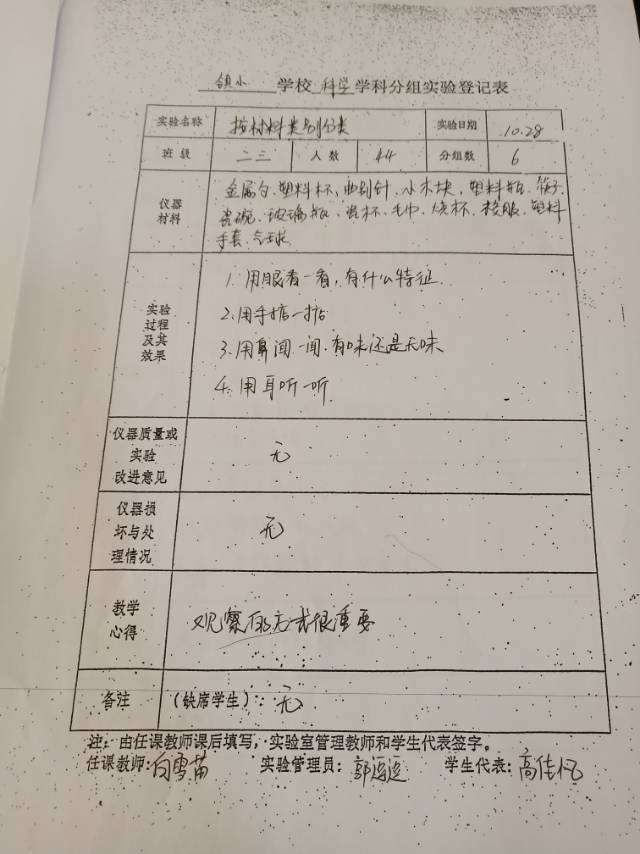 镇小 学校 科学 学科分组实验登记表
实验名称 按材料类别分类 实验日期 10.28
班级 二三 人数 44 分组数 6
仪器材料 金属勺、塑料杯、曲别针、小木块、塑料瓶、筷子、
瓷碗、玻璃瓶、瓷杯、毛巾、烧杯、校服、塑料
手套、气球
实验过程及其效果
1. 用眼看一看，有什么特征
2. 用手掂一掂
3. 用鼻闻一闻，有味还是无味
4. 用耳听一听
仪器质量或实验改进意见 无
仪器损坏与处理情况 无
教学心得 观察的方式很重要
备注 (缺席学生)：无
注：由任课教师课后填写，实验室管理教师和学生代表签字。
任课教师:白雪苗 实验管理员： 学生代表：高佳